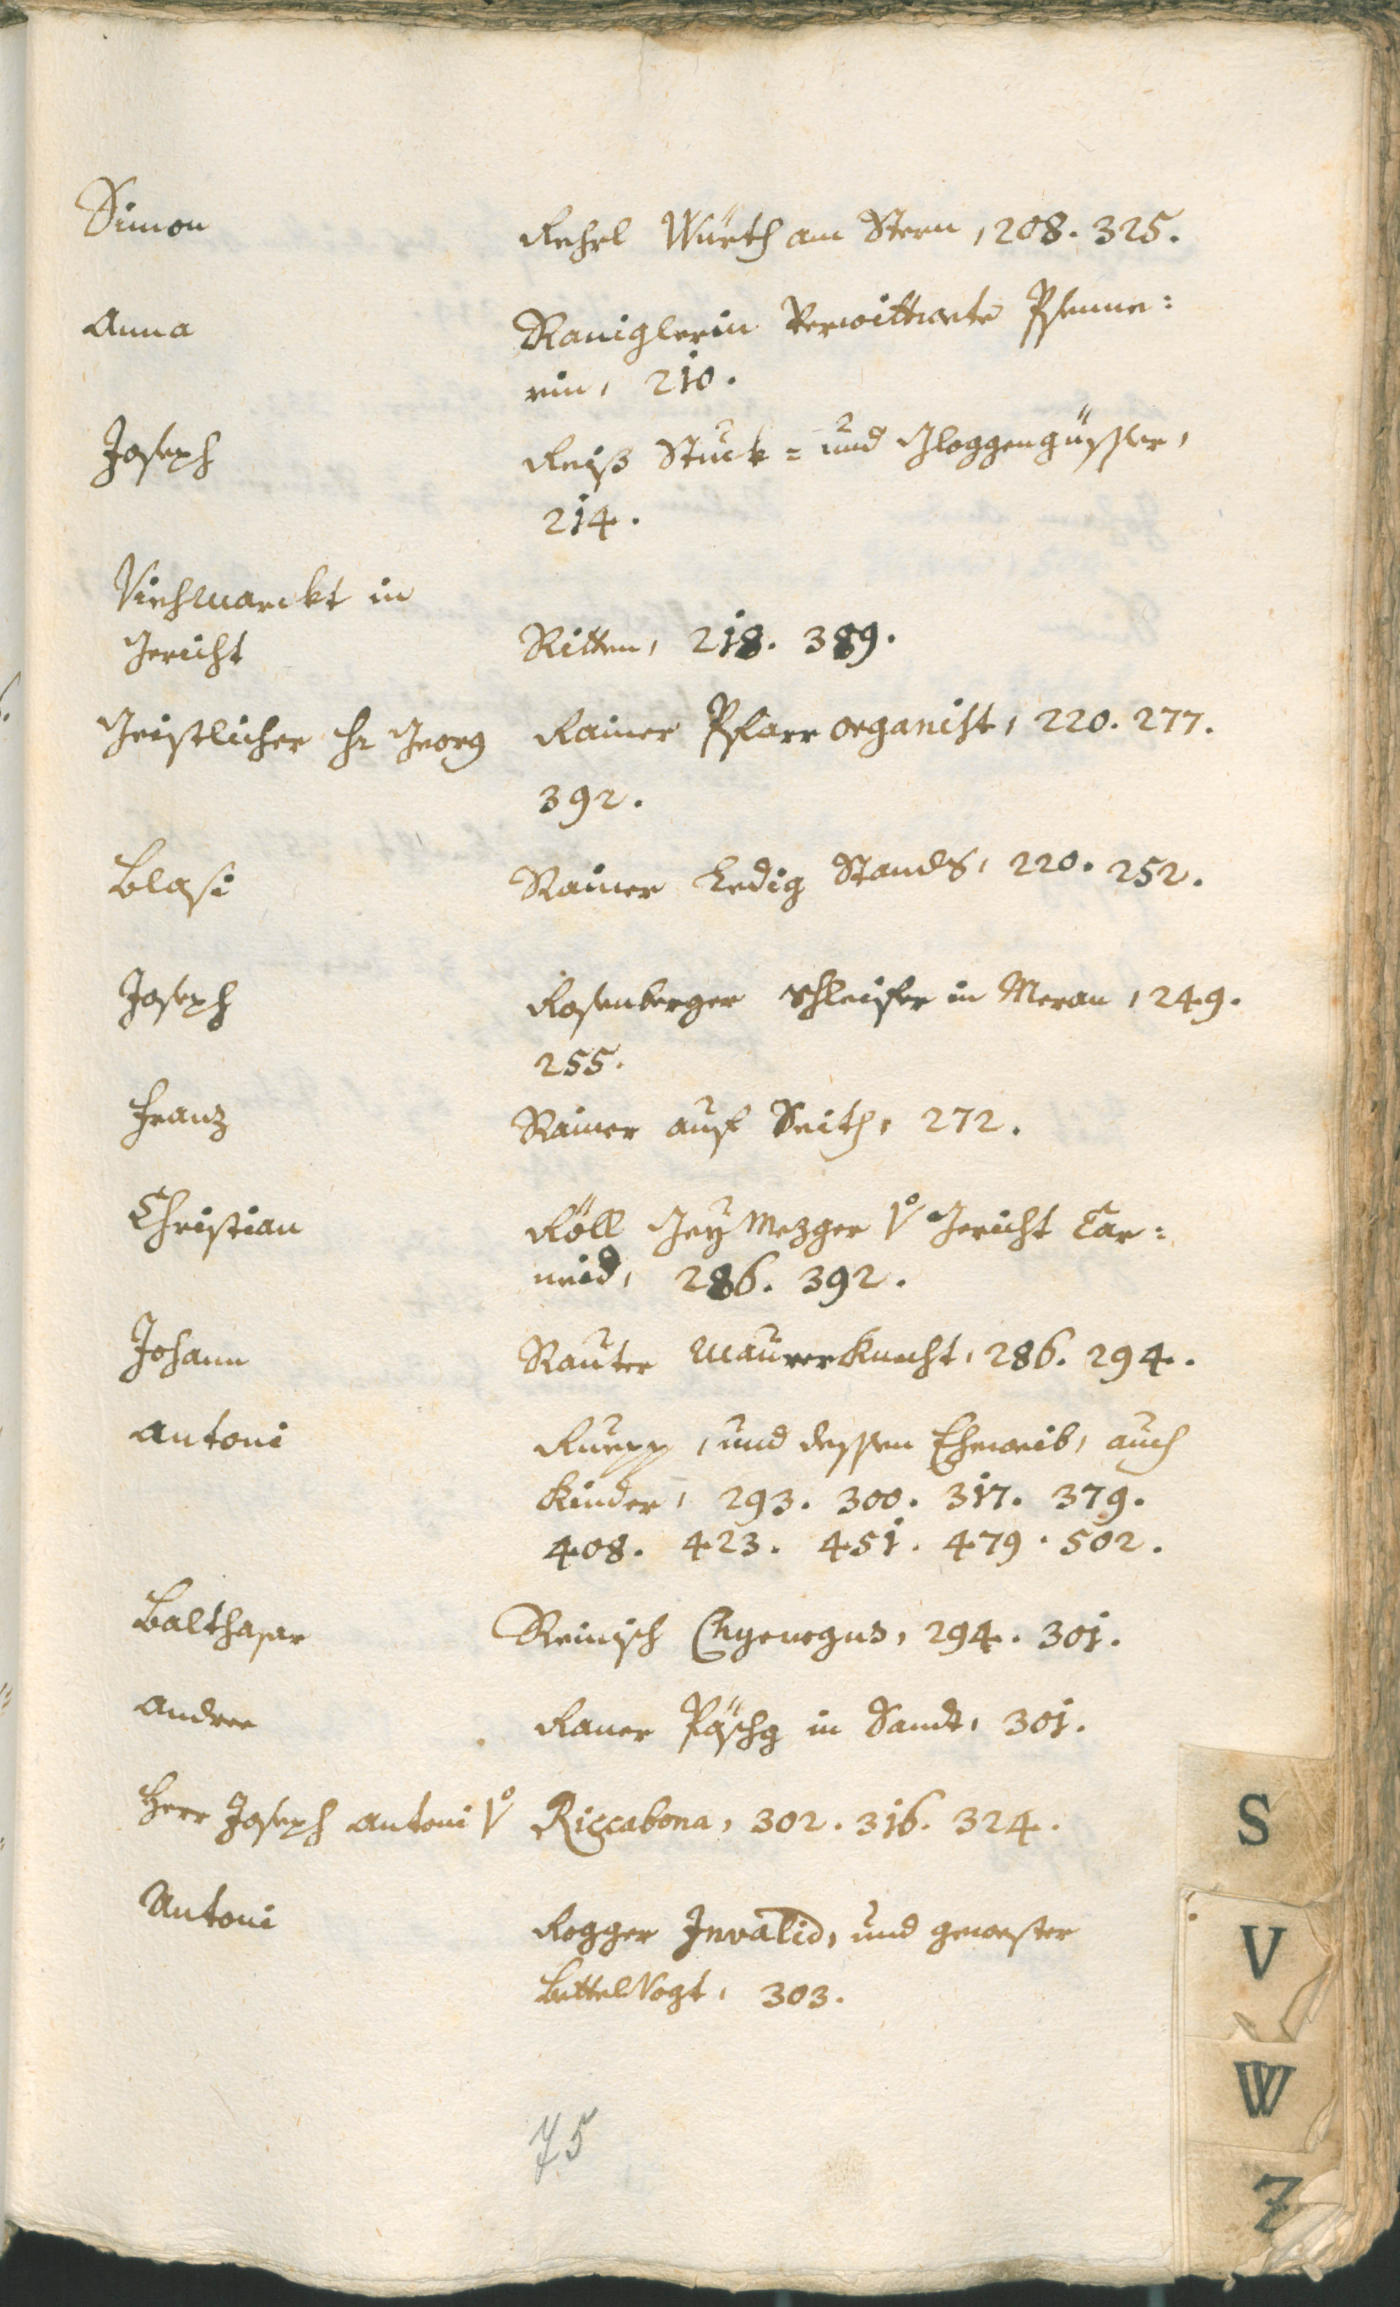 Simon Rehrl Würth am Stern, 208. 325.
Anna Raniglerin Verwittwete Pfenne=
rin, 210.
Joseph Reiß Stuck= und Gloggengüsser,
214.
Viehmarckt in
Gericht Ritten, 218. 389.
Geistlicher Hr Georg Rainer Pfarrorganist, 220. 277.
392.
Blasi Rainer Ledig Stands, 220. 252.
Joseph Rosenberger Schleifer in Meran, 249.
255.
Franz Rainer auf Seith, 272.
Christian Röll Mezger Vo Gericht Car=
neid, 286. 392.
Johann Rauter Maurerknecht, 286. 294.
Antoni Ruepp, und dessen Eheweib, auch
Kinder, 293. 300. 317. 379.
408. 423. 451. 479. 502.
Balthasar Reinisch Chyrurgus, 294. 301.
Andree Raner in Sandt, 301.
Herr Joseph Antoni Vo Riccabona, 302. 316. 324.
Antoni Rogger Invalid, und gewester
BettelVogt, 303.
75
S
V
W
Z